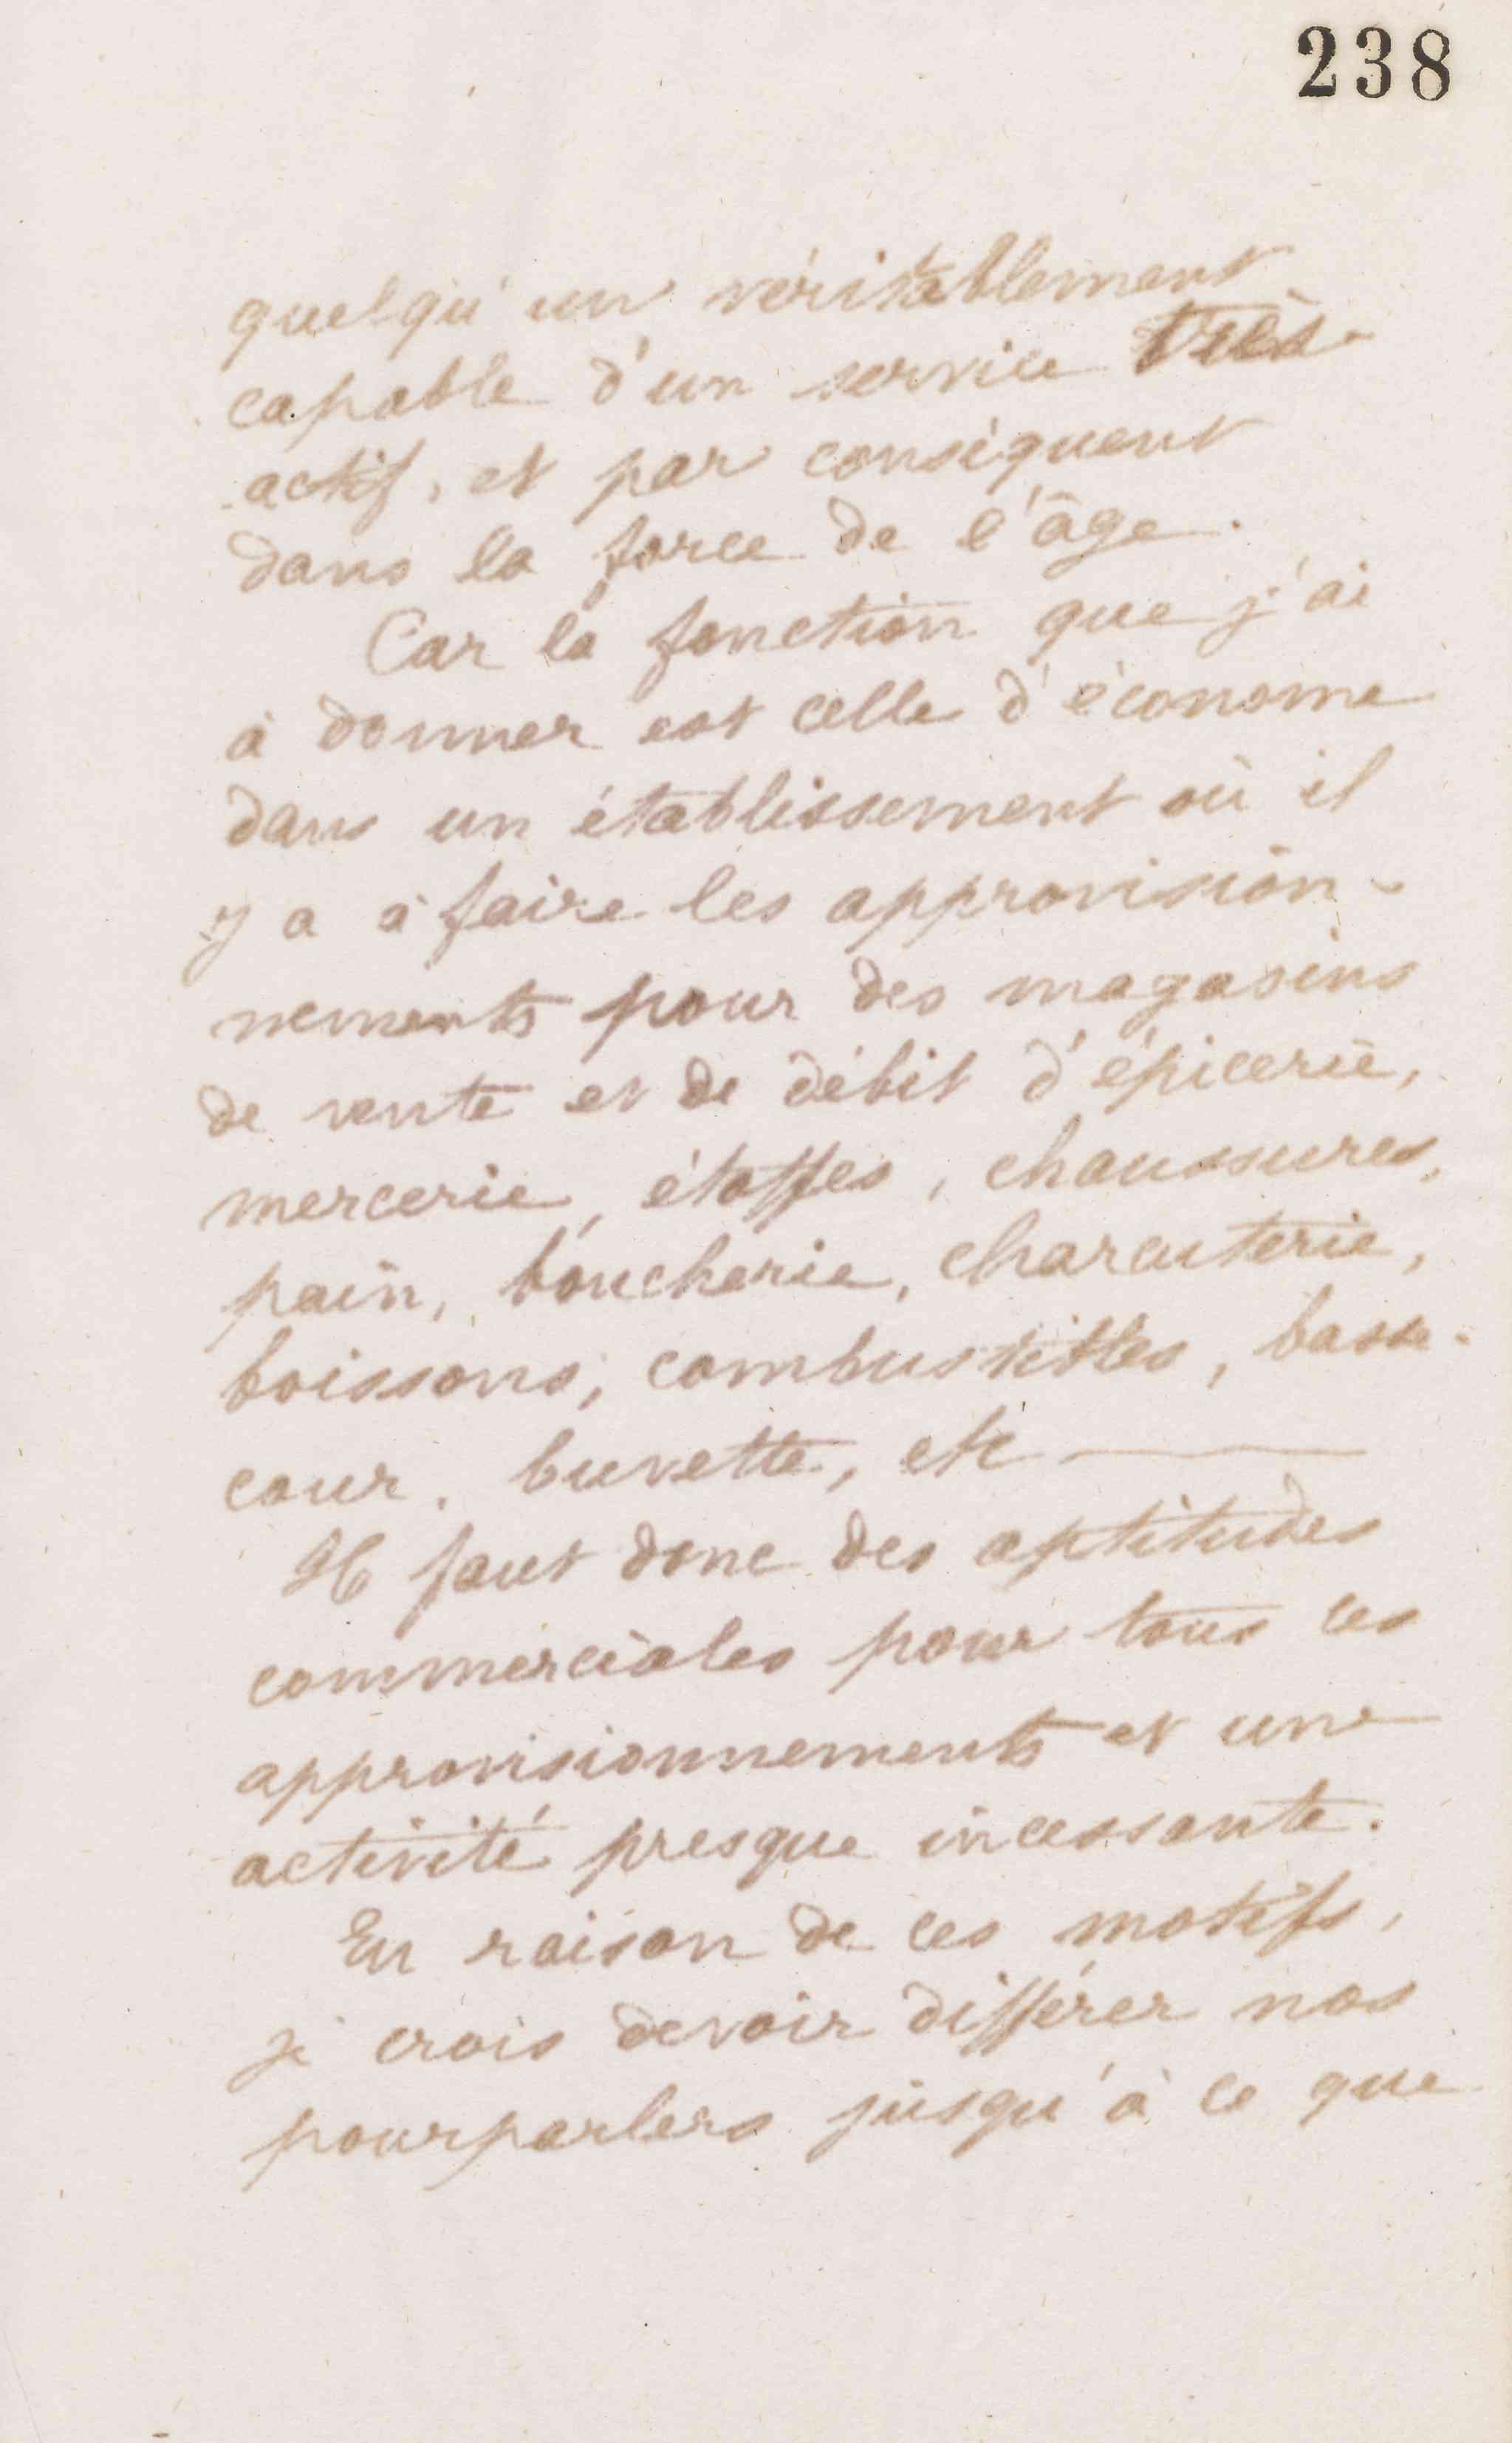 238
quelqu'un véritablement
capable d'un service très
actif, et par conséquent
dans la force de l'âge.
Car la fonction que j'ai
à donner est celle d'économe
dans un établissement où il
y a à faire les approvision-
nements pour des magasins
de vente et de débit d'épicerie,
mercerie, étoffes, chaussures,
pain, boucherie, charcuterie,
boissons, combustibles, basse-
cour, buvette, etc
Il faut donc des aptitudes
commerciales pour tous ces
approvisionnements et une
activité presque incessante.
En raison de ces motifs,
je crois devoir différer nos
pourparlers jusqu'à ce que